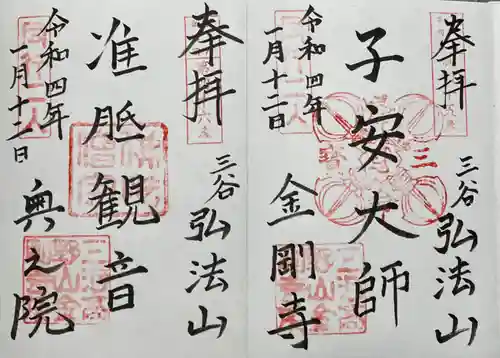 奉拝
三谷 弘法山
子安大師
金剛寺
令和四年
一月十二日
奉拝
三谷 弘法山
准胝観音
奥之院
令和四年
一月十二日